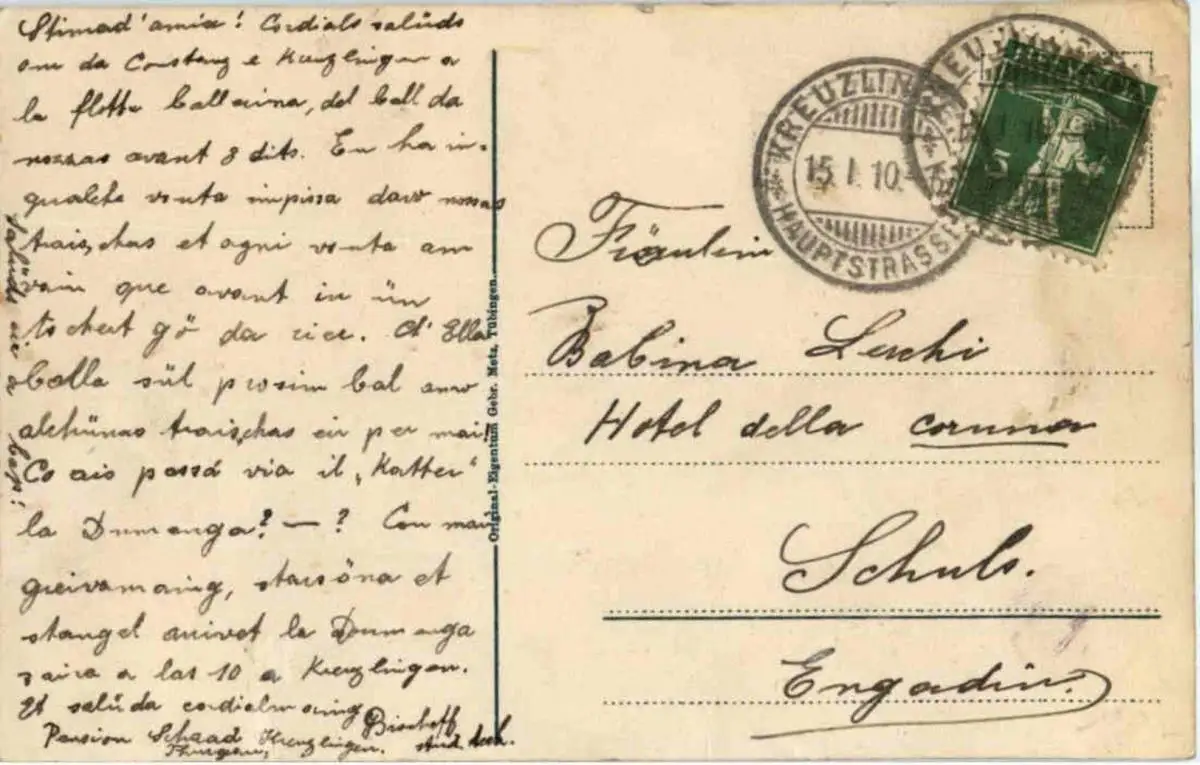 Stimad' amia! Cordials salüds
our da Constanz e Kreuzlingen a
la flotta ballarina, del ball da
nozzas avant 8 dits. Eu ha in-
qualche vouta impissa davo nossas
traischas et ogni vouta am
vain que avant in ün
tschert gö da rier. A' Ella
balla sül prosim bal amo
alchünas traischas eir per mai!
Co ais passá via il „Katter“
la Dumenga? — ? Cou mau
greivamaing, starsöna et
stangel arrivet la Dumenga
saira a las 10 a Kreuzlingen.
Et salüda cordielmaing
Bischoff
stud. tech.
Pension Schaad Kreuzlingen.
Thurgau,
Salüds eir a bap!
Original-Eigentum Gebr. Metz, Tübingen.
KREUZLINGEN
15. I. 10.
HAUPTSTRASSE
5
Fräulein
Babina Lerchi
Hotel della coruna
Schuls.
Engadin.